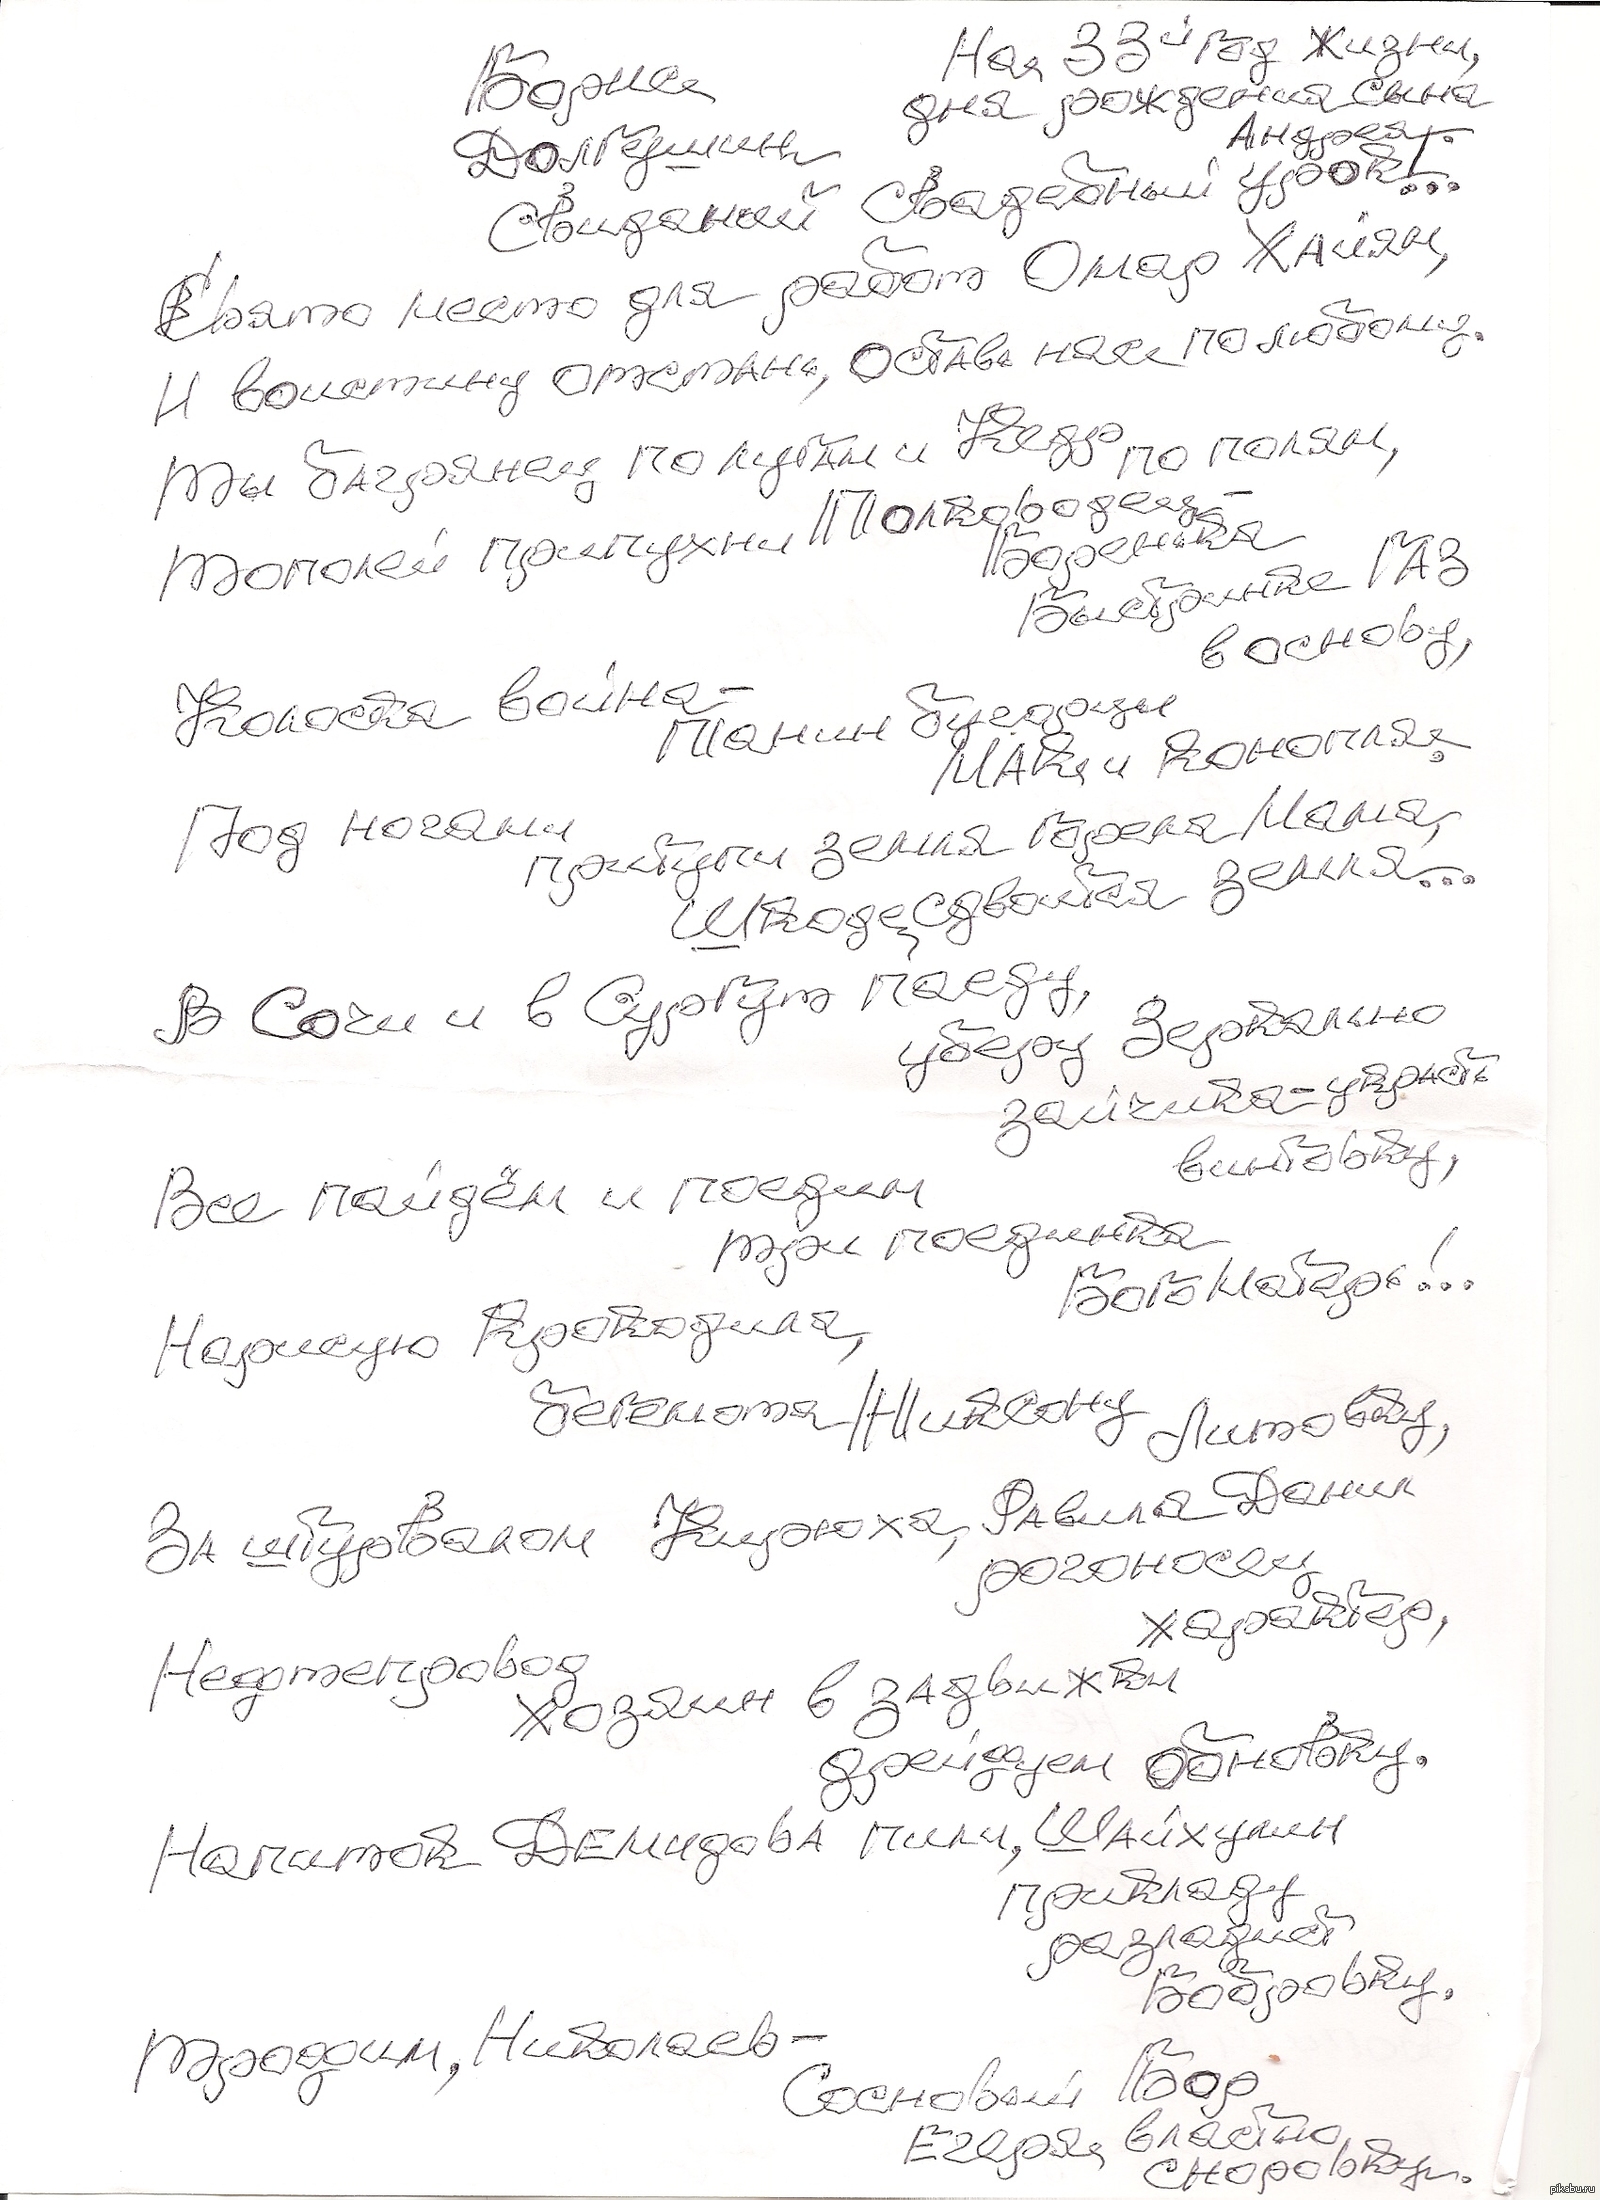 Борис
Долгушин
На 33й год жизни,
дня рождения сына
Андрея!.
Свиданий Свадебный урок!...
Свято место для работ Омар Хайям,
И воистину отстань, оставь нас по любому.
Ты багрянец по лугам и Кедр по полям,
Тополей припухни Полководец-
Боренька
Быстринке ГАЗ
в основу,
Колоска война-
Панин бусорци
МАК и конопля,
Под ногами
прибути земля горела Мама,
Шкоде, сдвоится земля...
В Сочи и в Сургут паеду,
уберу Зеркально
зайчика-укрость
винтовку,
Все пайдём и поедим
три поединка
Бога Матерь!...
Нарисую Крокодила,
бегемота/Никсону Литовку,
За штурвалом Кирюха, Равила Данил
рогоносец
характер,
Нефтепровод
хозяин в задвижки
дрейфуем обновку.
Напиток ДЕМИДОВА пили, Шайхулин
прикладу
разладист
Бобровку.
Трофим, Николаев-
Сосновый Бор
Егеря, властью
сноровку.
pikabu.ru